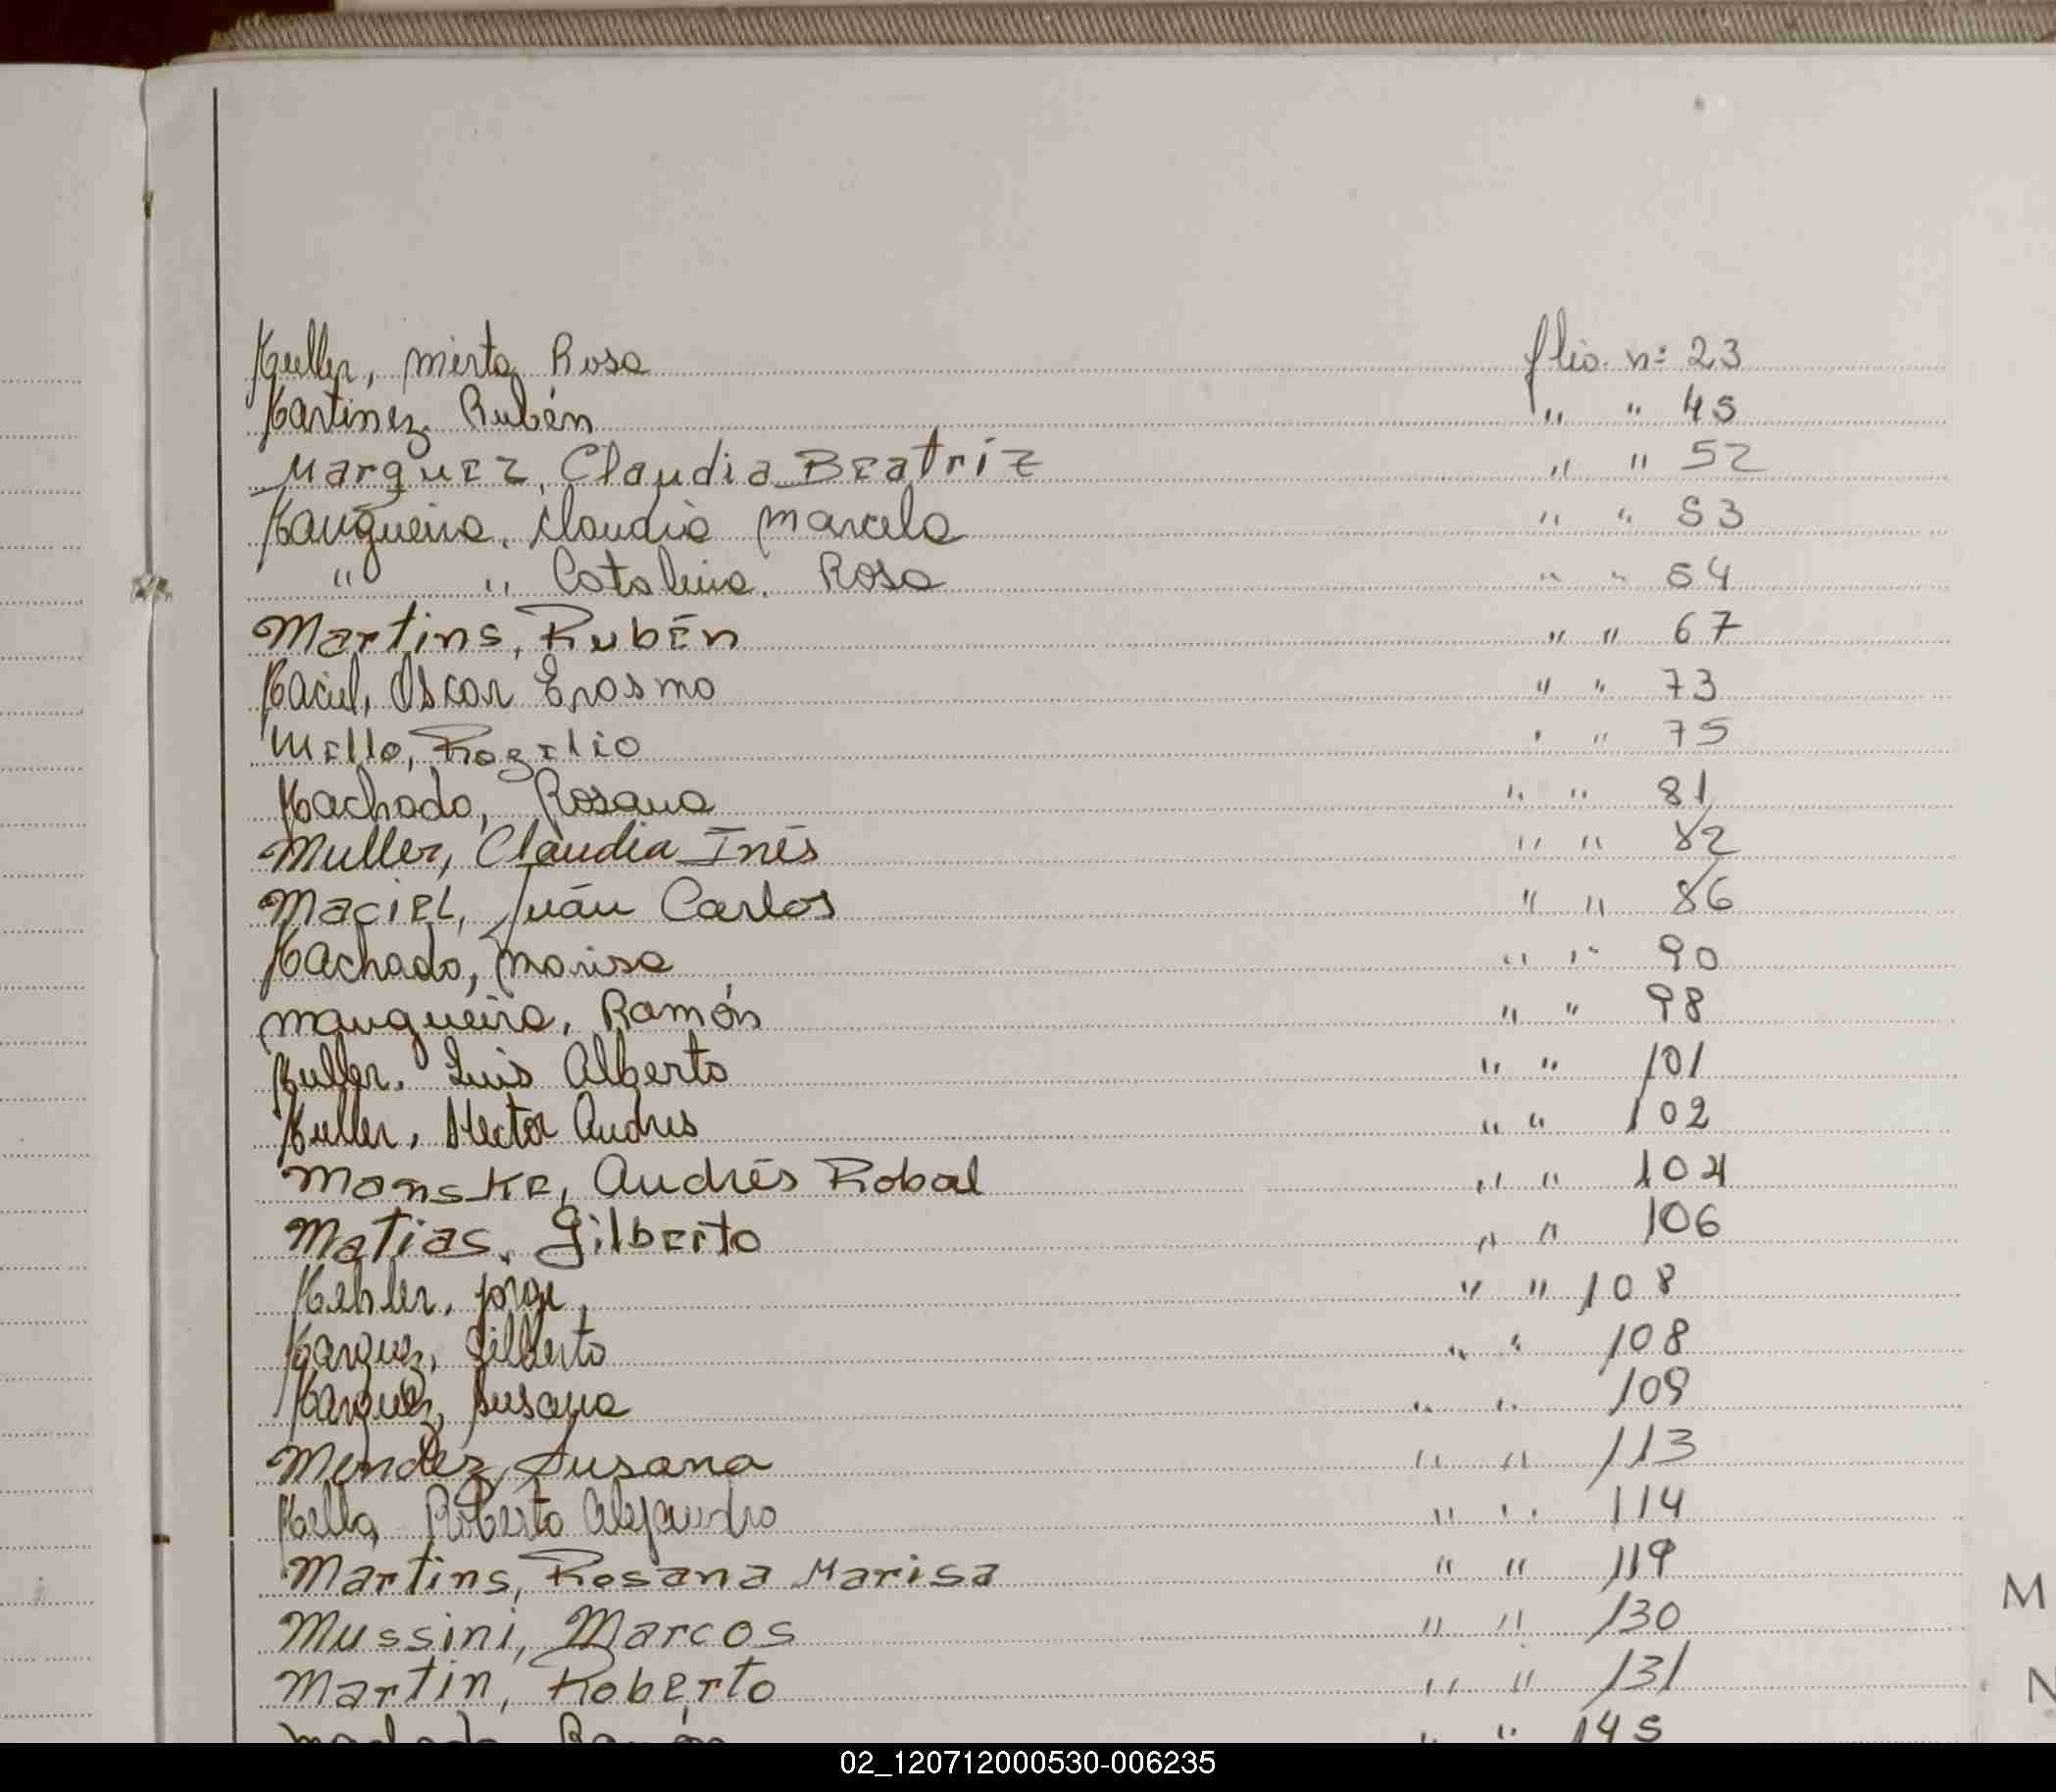 Muller, Mirta Rosa folio nº 23
Martinez Rubén " " 45
Marquez, Claudia Beatriz " " 52
Maugueira, Claudia Marcela " " 53
" " Catalina. Rosa " " 54
Martins, Rubén " " 67
Maciel, Oscar Erasmo " " 73
Mello, Rogelio " " 75
Machado, Rosana " " 81
Muller, Claudia Inés " " 82
Maciel, Juán Carlos " " 86
Machado, Marisa " " 90
Maugueira, Ramón " " 98
Muller. Luis Alberto " " 101
Muller, Hector Andres " " 102
Manske, Andrés Robal " " 104
Matias, Gilberto " " 106
Mehler, Jorge " " 108
Marquez, Gilberto " " 108
Marquez, Susana " " 109
Mendez, Susana " " 113
Mello, Roberto Alejandro " " 114
Martins, Rosana Marisa " " 119
M
Mussini, Marcos " " 130
Martin, Roberto " " 131
N
Machado Ramón " " 145
02_120712000530-006235